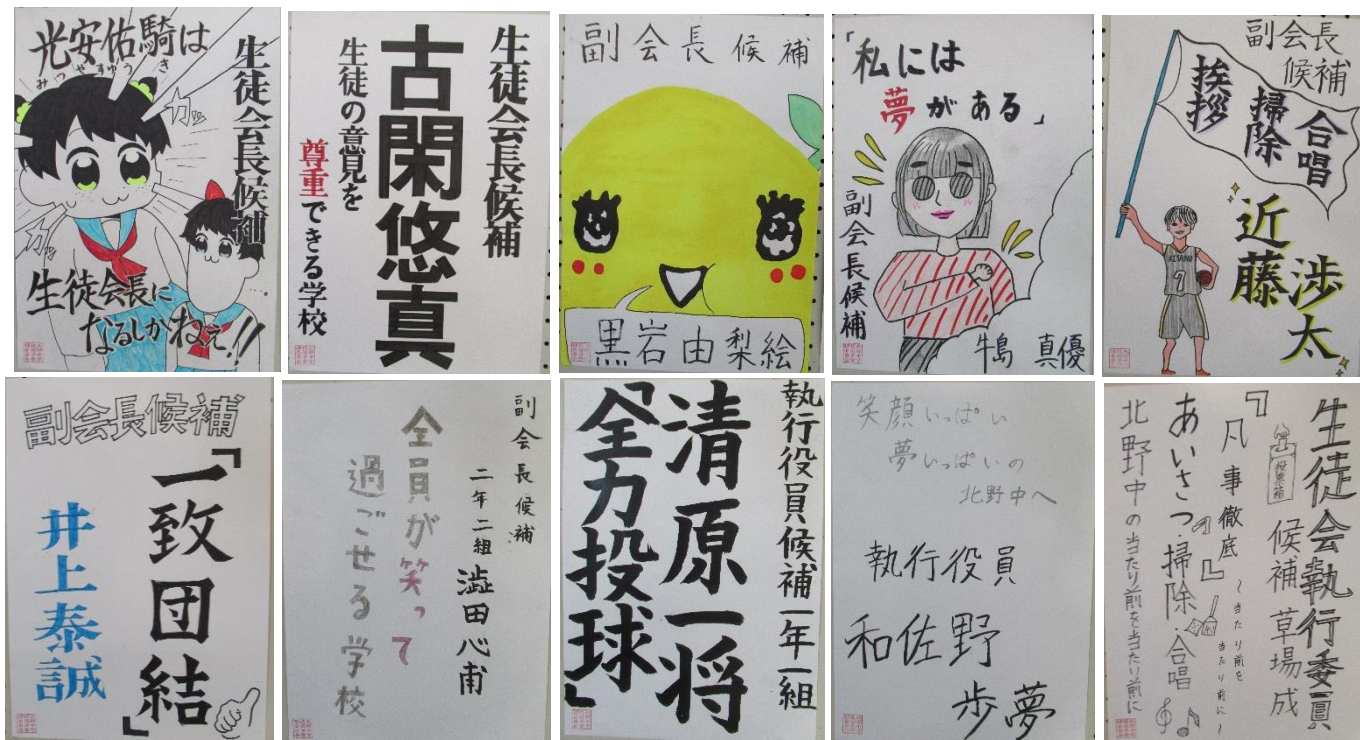 光安佑騎は
みつやすゆうき
生徒会長候補
ガッ
ガッ
生徒会長に
なるしかねぇ!!
生徒会長候補
古閑悠真
生徒の意見を
尊重できる学校
副会長候補
黒岩由梨絵
「私には
夢がある」
副会長候補
牛島 真優
副会長
候補
合唱
掃除
挨拶
KITANO
7
近藤
渉太
副会長候補
「一致団結」
井上泰誠
副会長候補
二年二組 澁田心甫
全員が笑って
過ごせる学校
執行役員候補一年一組
清原一将
「全力投球」
笑顔いっぱい
夢いっぱいの
北野中へ
執行役員
和佐野
歩夢
生徒会執行委員
候補 草場成
投票箱
『凡事徹底』
~当たり前を
当たり前に~
あいさつ・掃除・合唱
北野中の当たり前を当たり前に